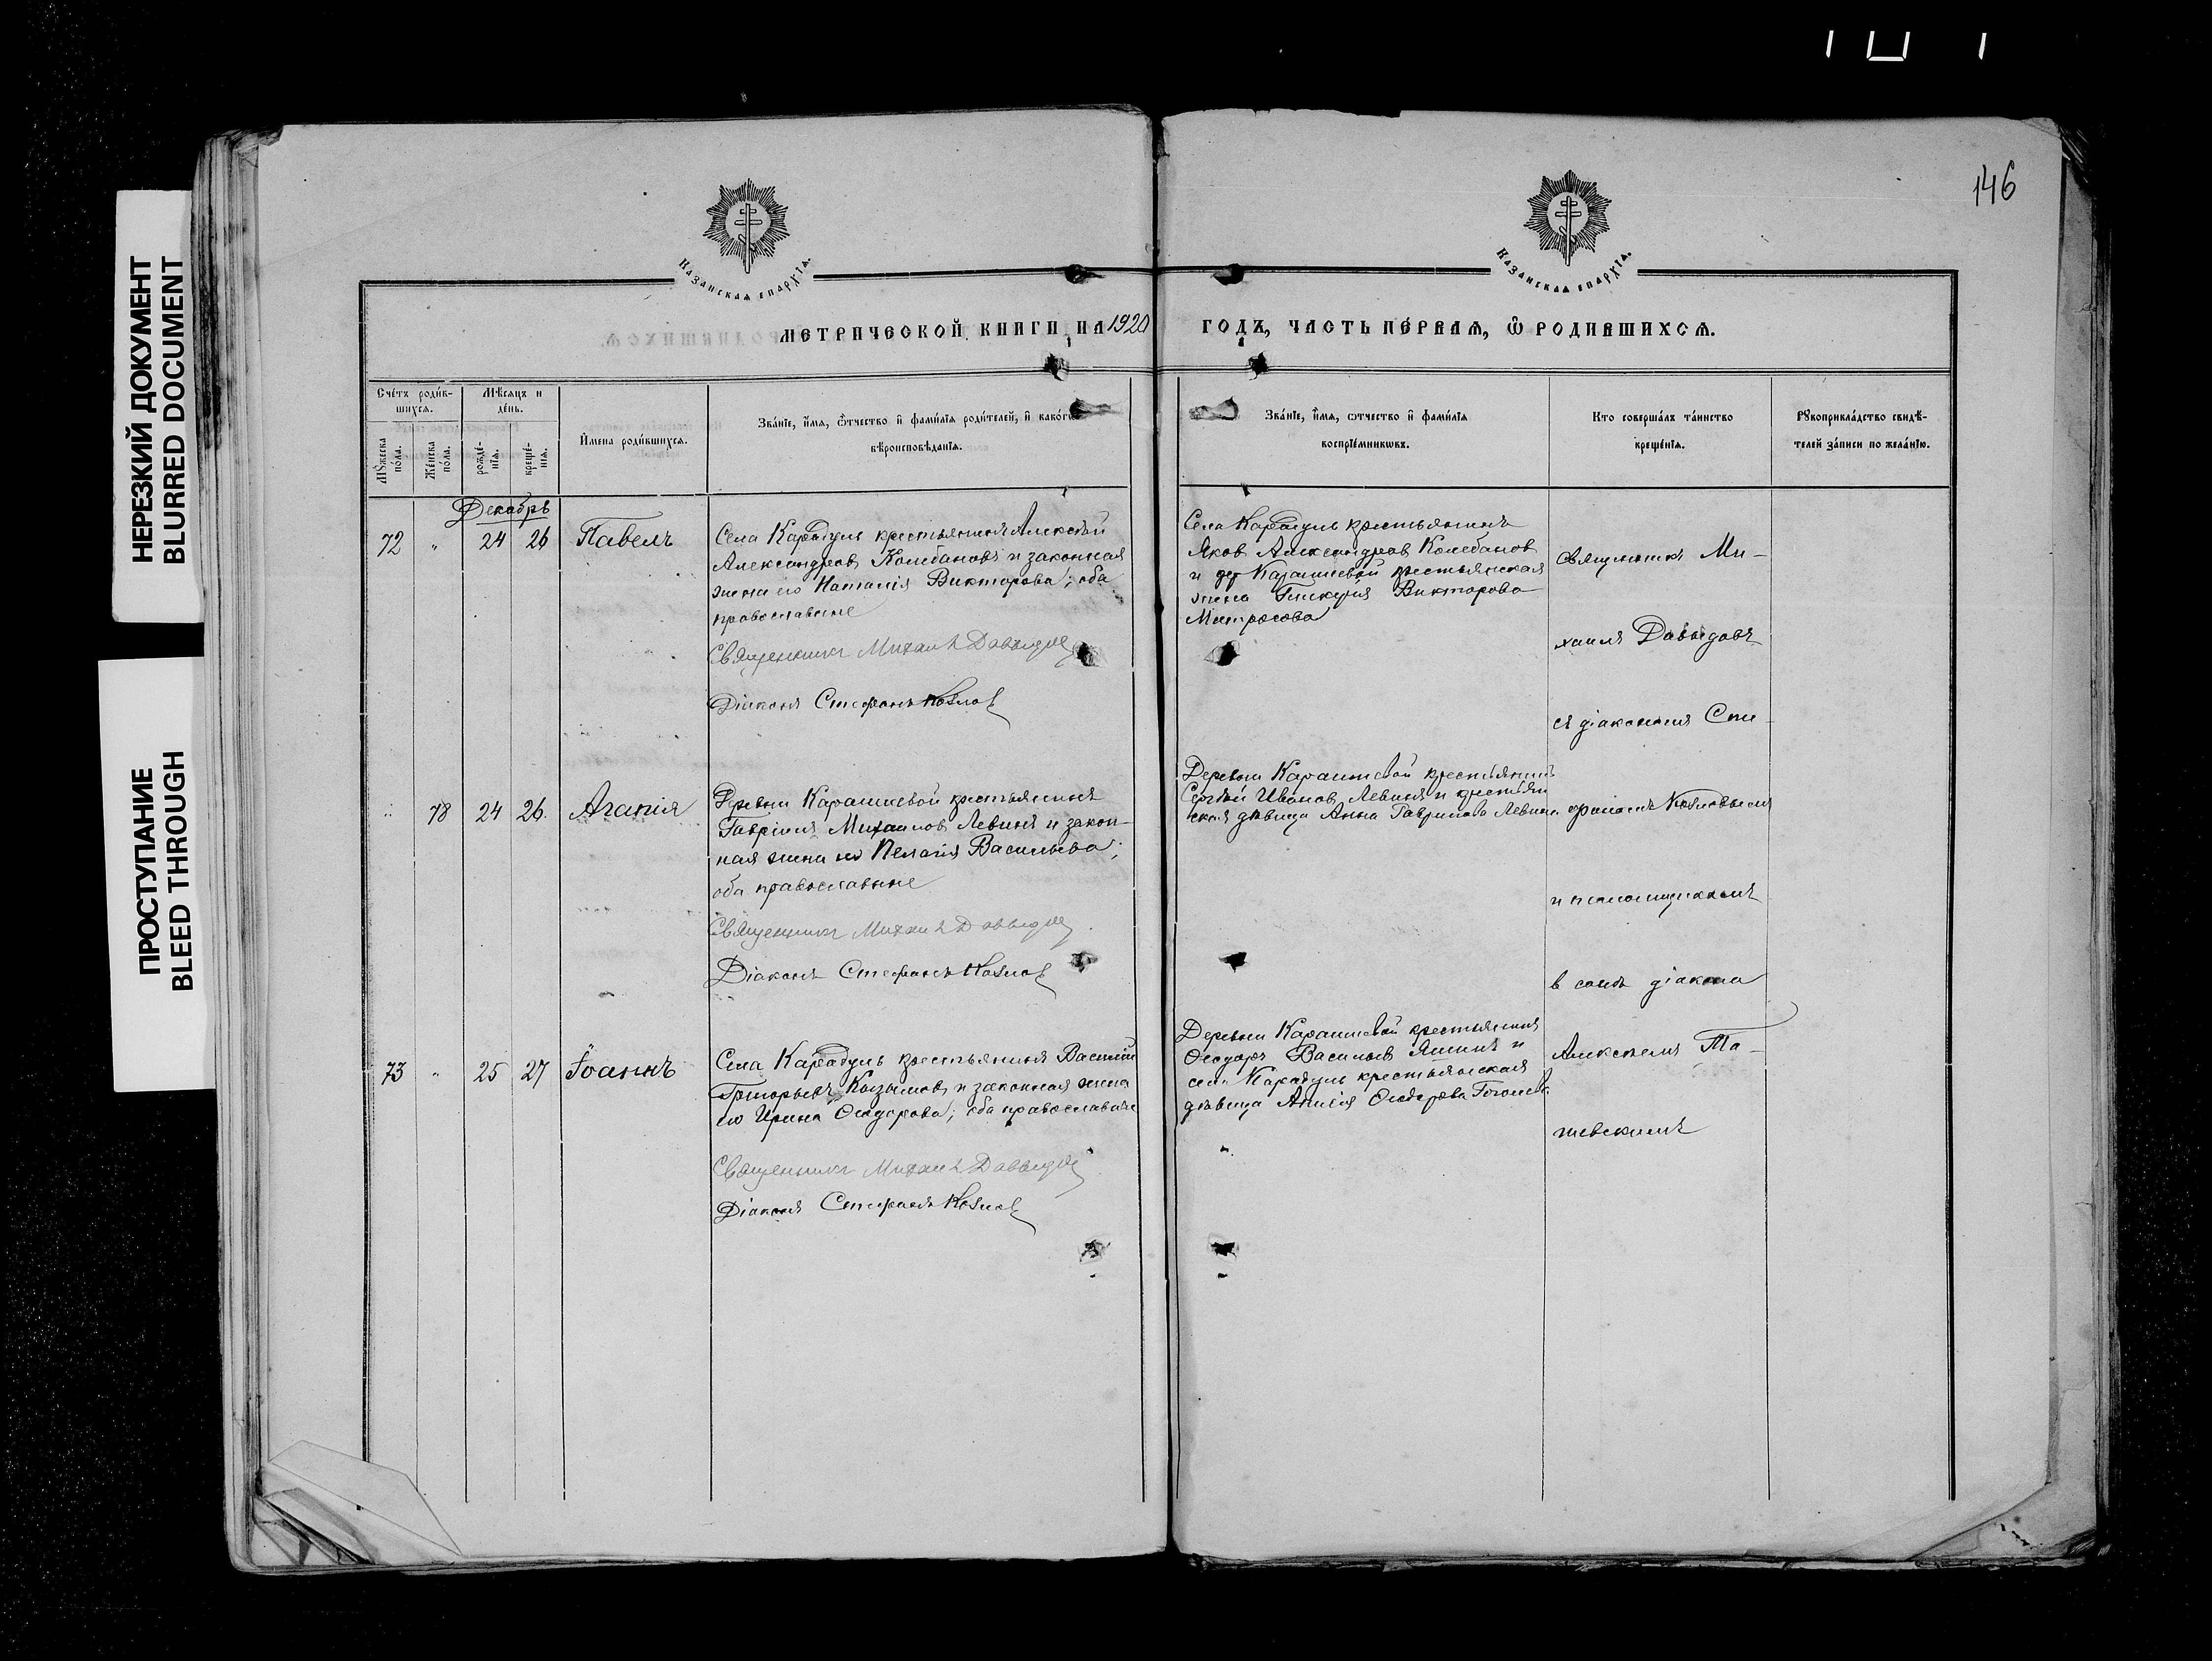 146
НЕРЕЗКИЙ ДОКУМЕНТ
BLURRED DOCUMENT
ПРОСТУПАНИЕ
BLEED THROUGH
КАЗАНСКАѦ ЕПАРХІѦ.
КАЗАНСКАѦ ЕПАРХІѦ.
МЕТРИЧЕСКОЙ КНИГИ НА 1920 ГОДЪ, ЧАСТЬ ПЕРВАѦ, Ѿ РОДИВШИХСѦ.
Сче́тъ роди́вшихсѧ.
Мѣ́сѧцъ и де́нь.
Мꙋ́жеска по́ла.
Же́нска по́ла.
рожде́нїѧ.
креще́нїѧ.
И҆мена роди́вшихсѧ.
Зва́нїе, и҆́мѧ, ѻ҆́тчество и҆ фами́лїѧ роди́телей, и҆ како́гѡ
вѣроисповѣ́данїѧ.
Зва́нїе, и҆́мѧ, ѻтчество и҆ фами́лїѧ
воспрїе́мникѡвъ.
Кто соверша́лъ та́инство
креще́нїѧ.
Рꙋкоприкла́дство свидѣ́-
телей за́писи по жела́нїю.
Декабрь
72 " 24 26 Павелъ
Села Карабулъ крестьянинъ Алексѣй
Александровъ Колебановъ и законная
жена его Наталія Викторова; оба
православные
Священникъ Михаилъ Давыдов
Діаконъ Стефанъ Козлов
Села Карабулъ крестьянинъ
Яков Александров Колебанов
и дер Карашевой крестьянская
жена Гликерія Викторова
Матросова
" 78 24 26. Агапія
Деревни Карашевой крестьянинъ
Гавріилъ Михаилов Левинъ и закон-
ная жена его Пелагія Васильева;
оба православные
Священникъ Михаилъ Давыдов
Діаконъ Стефанъ Козлов
Деревни Карашевой крестьянинъ
Сергѣй Иванов Левинъ и крестьян
ская дѣвица Анна Гаврилова Левина
73 " 25 27 Іоаннъ
Села Карабулъ крестьянинъ Василій
Григорьевъ Козловъ и законная жена
его Ирина Ѳеодорова; оба православные
Священникъ Михаилъ Давыдов
Діаконъ Стефанъ Козлов
Деревни Карашевой крестьянинъ
Ѳеодоръ Васильев Яшинъ и
села Карабулъ крестьянская
дѣвица Ѳеодорова
Священникъ Ми-
хаилъ Давыдовъ
съ діакономъ Сте-
фаномъ Козловымъ
и псаломщикомъ
в санѣ діакона
Алексѣемъ